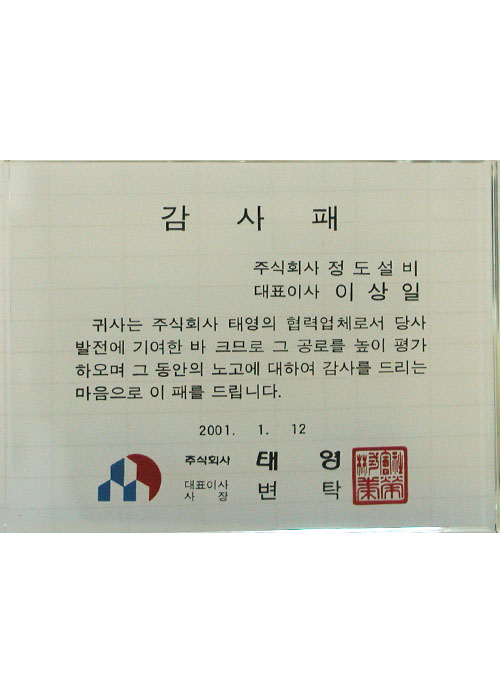 감 사 패
주식회사 정 도 설 비
대표이사 이 상 일
귀사는 주식회사 태영의 협력업체로서 당사
발전에 기여한 바 크므로 그 공로를 높이 평가
하오며 그 동안의 노고에 대하여 감사를 드리는
마음으로 이 패를 드립니다.
2001. 1. 12
주식회사 태 영
대표이사
사 장 변 탁